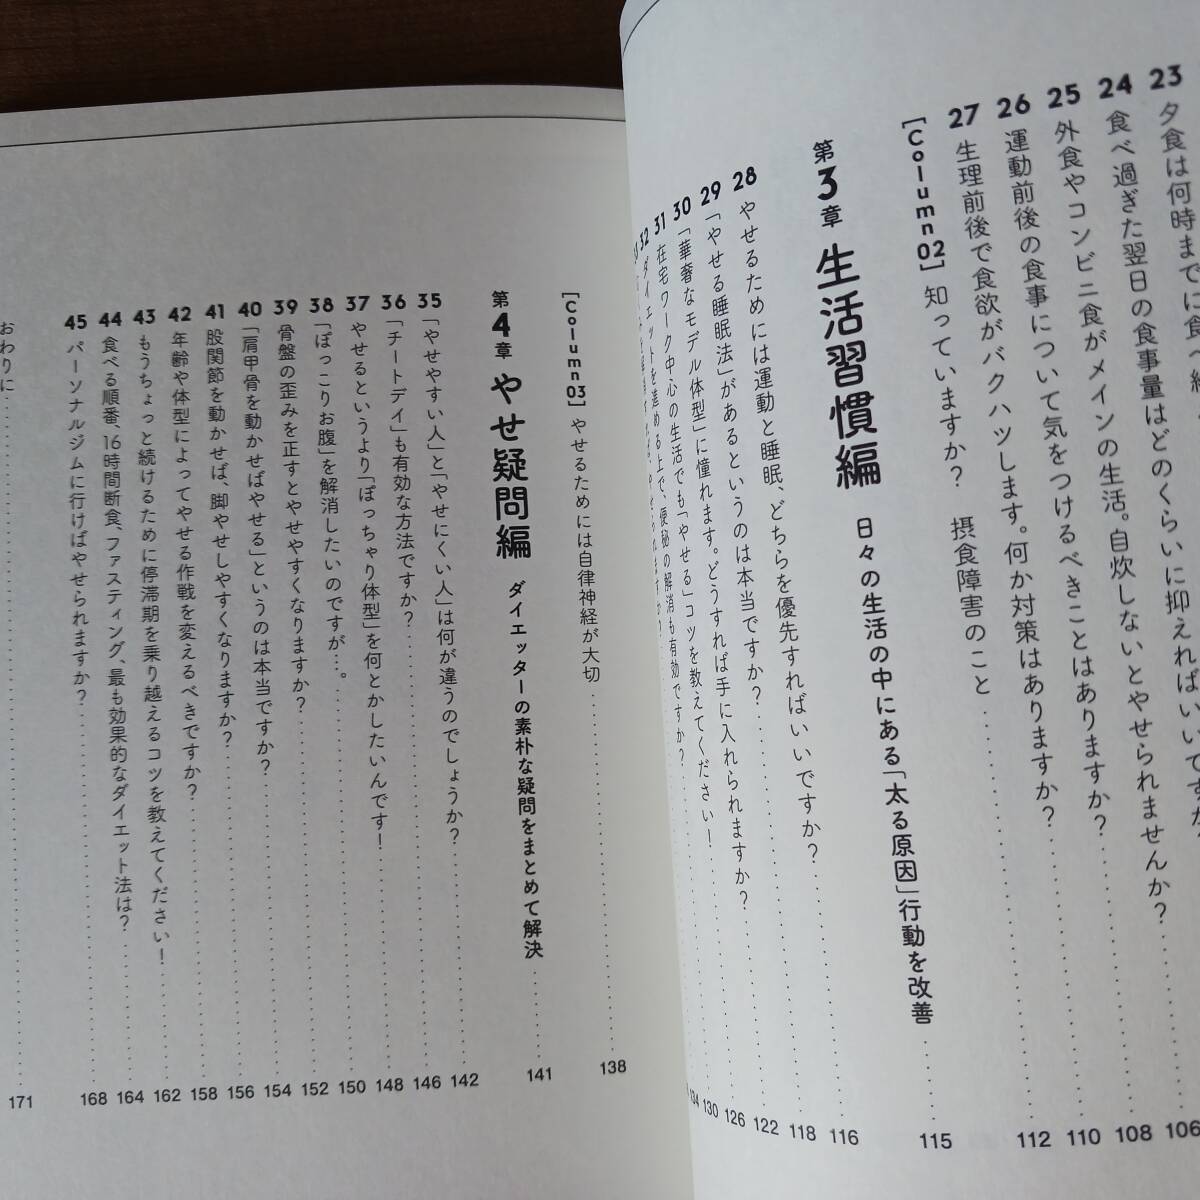 23 夕食は何時までに食べ
24 食べ過ぎた翌日の食事量はどのくらいに抑えればいいですか
25 外食やコンビニ食がメインの生活。自炊しないとやせられませんか？ 106
26 運動前後の食事について気をつけるべきことはありますか？ 108
27 生理前後で食欲がバクハツします。何か対策はありますか？ 110
[Column02] 知っていますか？ 摂食障害のこと 112
第3章 生活習慣編 日々の生活の中にある「太る原因」行動を改善 115
28 やせるためには運動と睡眠、どちらを優先すればいいですか？ 116
29 「やせる睡眠法」があるというのは本当ですか？ 118
30 「華奢なモデル体型」に憧れます。どうすれば手に入れられますか？ 122
31 在宅ワーク中心の生活でも「やせる」コツを教えてください！ 126
32 ダイエットを進める上で、便秘の解消も有効ですか？ 130
134
[Column03] やせるためには自律神経が大切 138
第4章 やせ疑問編 ダイエッターの素朴な疑問をまとめて解決 141
35 「やせやすい人」と「やせにくい人」は何が違うのでしょうか？ 142
36 「チートデイ」も有効な方法ですか？ 146
37 やせるというより「ぽっちゃり体型」を何とかしたいんです！ 148
38 「ぽっこりお腹」を解消したいのですが…。 150
39 骨盤の歪みを正すとやせやすくなりますか？ 152
40 「肩甲骨を動かせばやせる」というのは本当ですか？ 154
41 股関節を動かせば、脚やせしやすくなりますか？ 156
42 年齢や体型によってやせる作戦を変えるべきですか？ 158
43 もうちょっと続けるために停滞期を乗り越えるコツを教えてください！ 162
44 食べる順番、16時間断食、ファスティング、最も効果的なダイエット法は？ 164
45 パーソナルジムに行けばやせられますか？ 168
おわりに 171